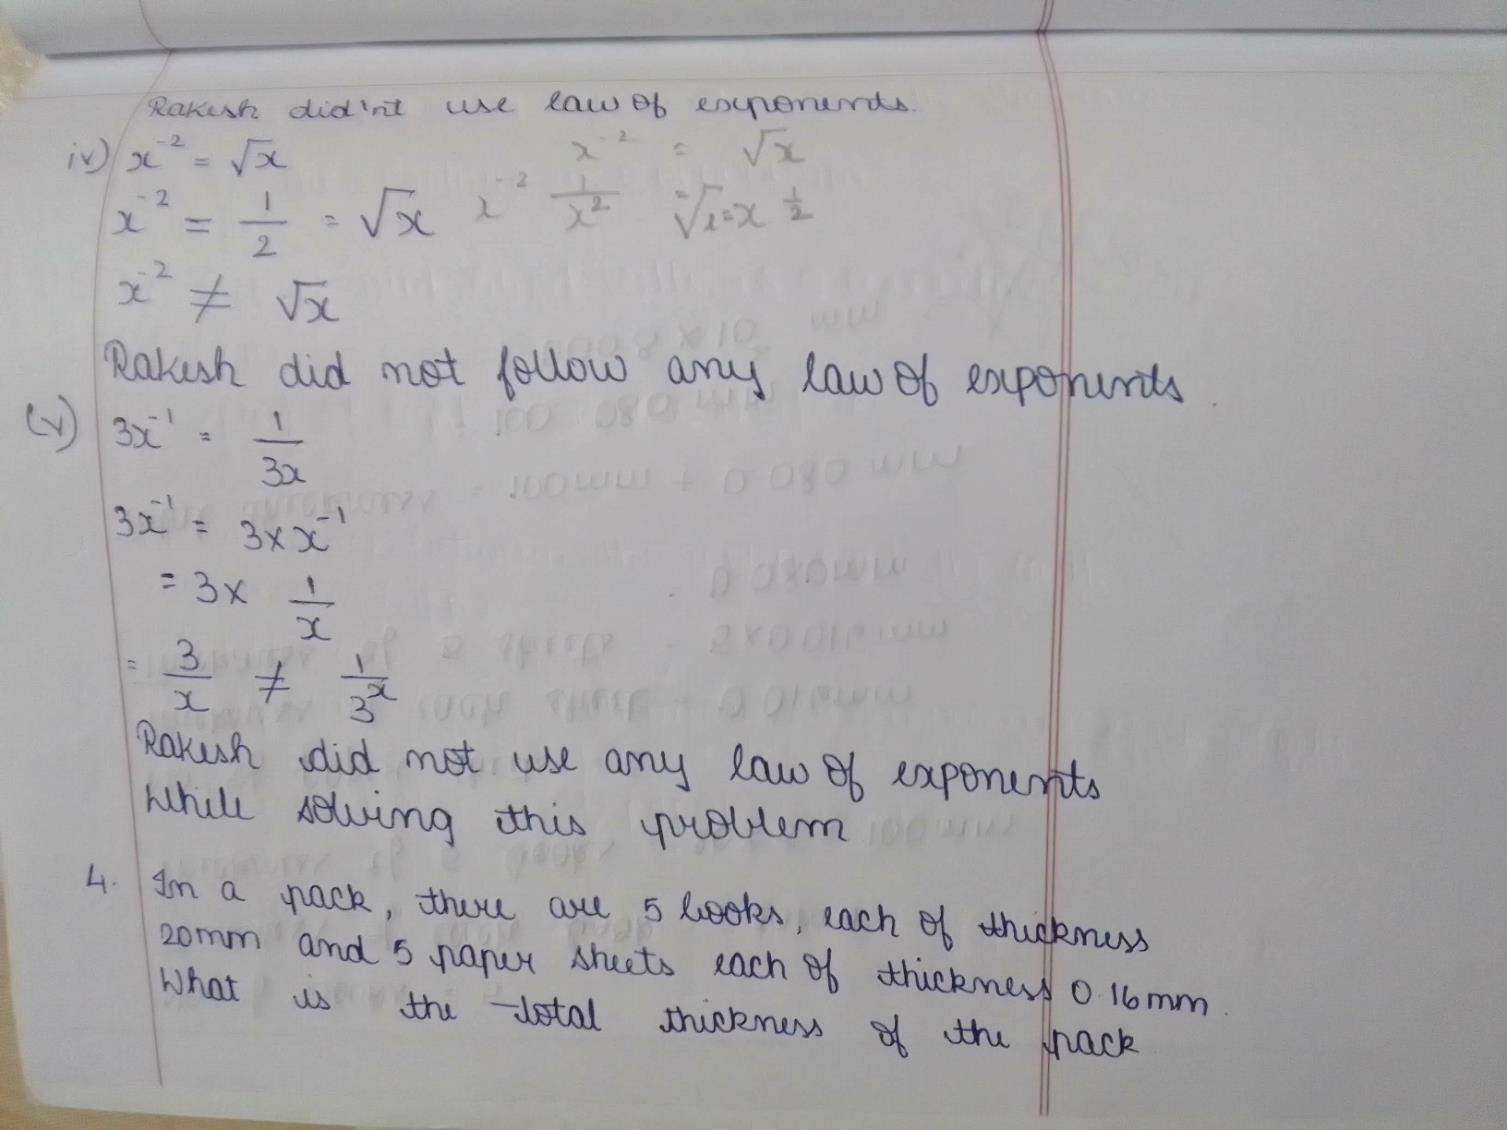 Rakesh did'nt use law of exponents.
iv) x⁻² = √x x⁻² = √x
x⁻² = 1/2 = √x x⁻² 1/x² √x = x^1/2
x⁻² ≠ √x
Rakesh did not follow any law of exponents.
(v) 3x⁻¹ = 1/3x
3x⁻¹ = 3 × x⁻¹
= 3 × 1/x
= 3/x ≠ 1/3x
Rakesh did not use any law of exponents
While solving this problem
4. In a pack, there are 5 books, each of thickness
20mm and 5 paper sheets each of thickness 0.16mm.
What is the total thickness of the pack